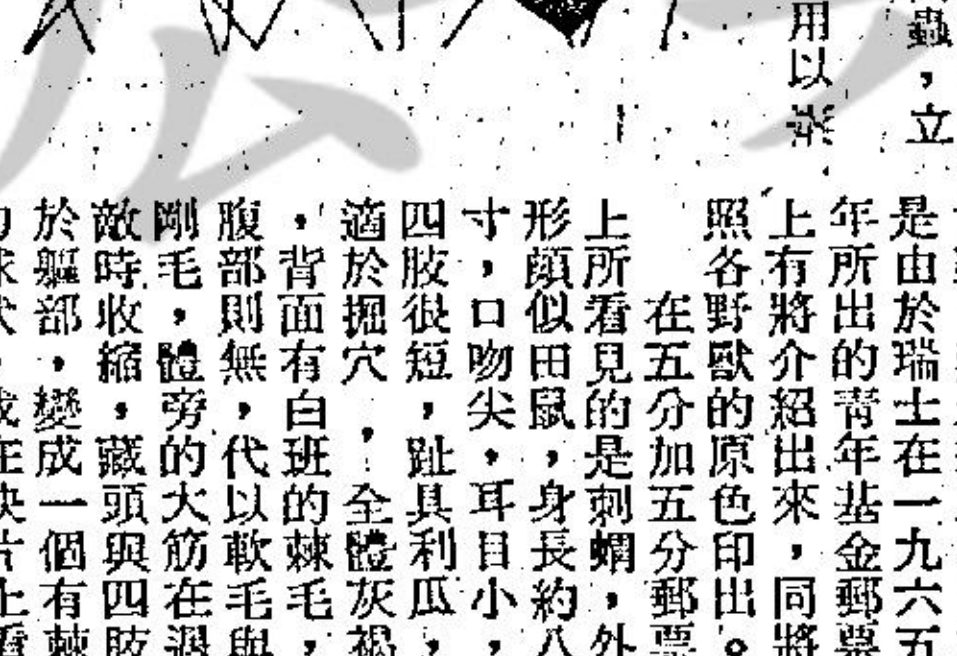 蟲，立
用以
是由於瑞士在一九六五
年所出的青年基金郵票
上有將介紹出來，同將
照各野獸的原色印出。
在五分加五分郵票
上所看見的是刺蝟，外
形頗似田鼠，身長約八
寸，口吻尖，耳目小，
四肢很短，趾具利瓜，
適於掘穴，全體灰褐
，背面有白班的棘毛，
腹部則無，代以軟毛與
剛毛，體旁的大筋在遇
敵時收縮，藏頭與四肢
於軀部，變成一個有棘